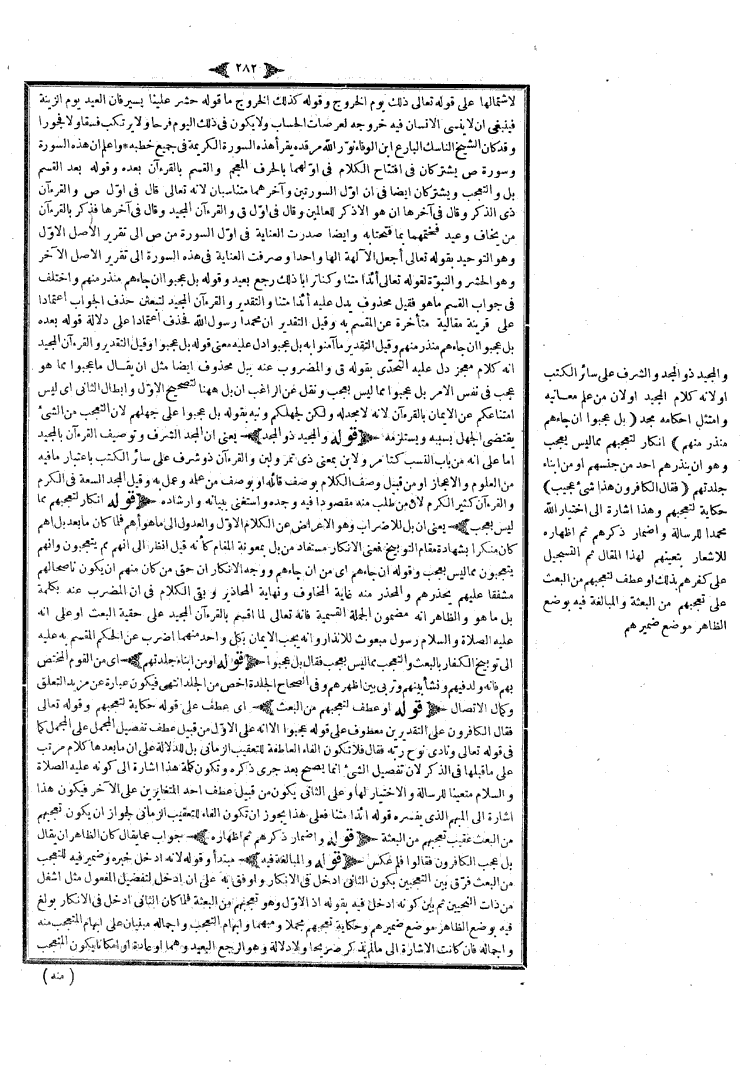 ﴿ ٢٨٢ ﴾
لاشتمالها على قوله تعالى ذلك يوم الخروج وقوله كذلك الخروج ما قوله حشر علينا يسير فان العيد يوم الزينة
فينبغى ان لا ينسى الانسان فيه خروجه لعرصات الحساب ولا يكون فى ذلك اليوم فرحا ولا يرتكب فسقا ولا فجورا
وقد كان الشيخ الناسك البارع ابن الوفاء نور الله مرقده يقرأ هذه السورة الكريمة فى جميع خطبه * واعلم ان هذه السورة
وسورة ص يشتركان فى افتتاح الكلام فى اولهما بالحرف المعجم والقسم بالقرءآن بعده وقوله بعد القسم
بل والتعجب ويشتركان ايضا فى ان اول السورتين وآخرهما متناسبان لانه تعالى قال فى اول ص والقرءآن
ذى الذكر وقال فى آخرها ان هو الا ذكر للعالمين وقال فى اول ق والقرءآن المجيد وقال فى آخرها فذكر بالقرءآن
من يخاف وعيد فختمهما بما فتحتابه وايضا صدرت العناية فى اول السورة من ص الى تقرير الاصل الاول
وهو التوحيد بقوله تعالى أجعل الآلهة الها واحدا وصرفت العناية فى هذه السورة الى تقرير الاصل الآخر
وهو الحشر والنبوة لقوله تعالى أئذا متنا وكنا ترابا ذلك رجع بعيد وقوله بل عجبوا ان جاءهم منذر منهم واختلف
فى جواب القسم ما هو فقيل محذوف يدل عليه أئذا متنا والتقدير والقرءآن المجيد لتبعثن حذف الجواب أعتمادا
على قرينة مقالية متأخرة عن المقسم به وقيل التقدير ان محمدا رسول الله فحذف أعتمادا على دلالة قوله بعده
بل عجبوا ان جاءهم منذر منهم وقيل التقدير ما آمنوا به بل عجبوا دل عليه معنى قوله بل عجبوا وقيل والتقدير والقرءآن المجيد
انه كلام معجز دل عليه التحدّى بقوله ق والمضروب عنه ببل محذوف ايضا مثل ان يقال ما عجبوا مما هو
عجب فى نفس الامر بل عجبوا مما ليس بعجب ونقل عن الراغب ان بل ههنا لتصحيح الاول وابطال الثانى اى ليس
امتناعكم عن الايمان بالقرءآن لانه لا مجد له ولكن لجهلكم ونبه بقوله بل عجبوا على جهلهم لان التعجب من الشئ
يقتضى الجهل بسببه ويستلزمه ﴿ قوله والمجيد ذو المجد ﴾ يعنى ان المجد الشرف وتوصيف القرءآن بالمجيد
اما على انه من باب النسب كتامر ولابن بمعنى ذى تمر ولبن والقرءآن ذو شرف على سائر الكتب باعتبار ما فيه
من العلوم والاعجاز او من قبيل وصف الكلام بوصف قائله او بوصف من علمه وعمل به وقيل المجد السعة فى الكرم
والقرءآن كثير الكرم لان من طلب منه مقصودا فيه وجده واستغنى ببيانه وارشاده ﴿ قوله انكار لتعجبهم مما
ليس بعجب ﴾ يعنى ان بل للاضراب وهو الاعراض عن الكلام الاول والعدول الى ما هو أهم فلما كان ما بعد بل اهم
كان منكرا بشهادة مقام التوبيخ فمعنى الانكار مستفاد من بل بمعونة المقام كأنه قيل انظر الى انهم يتعجبون وانهم
يتعجبون مما ليس بعجب وقوله ان جاءهم اى من ان جاءهم ووجه الانكار ان حق من كان منهم ان يكون ناصحا لهم
مشفقا عليهم يحذرهم والمحذر منه غاية المخاوف ونهاية المحاذير وبقى الكلام فى ان المضرب عنه بكلمة
بل ما هو والظاهر انه مضمون الجملة القسمية فانه تعالى لما اقسم بالقرءآن المجيد على حقية البعث او على انه
عليه الصلاة والسلام رسول مبعوث للانذار وانه يجب الايمان بكل واحد منهما اضرب عن الحكم المقسم به عليه
الى توبيخ الكفار بالبعث والتعجب مما ليس بعجب فقال بل عجبوا ﴿ قوله او من ابناء جلدتهم ﴾ اى من القوم المختص
بهم فانه ولد فيهم ونشأ بينهم وتربى بين اظهرهم وفى الصحاح الجلدة اخص من الجلد انتهى فيكون عبارة عن مزيد التعلق
وكمال الاتصال ﴿ قوله او عطف لتعجبهم من البعث ﴾ اى عطف على قوله حكاية لتعجبهم وقوله تعالى
فقال الكافرون على التقديرين معطوف على قوله عجبوا الا انه على الاول من قبيل عطف تفصيل المجمل على المجمل كما
فى قوله تعالى ونادى نوح ربه فقال فلا تكون الفاء العاطفة للتعقيب الزمانى بل للدلالة على ان ما بعدها كلام مرتب
على ما قبلها فى الذكر لان تفصيل الشئ انما يصح بعد جرى ذكره وتكون كلمة هذا اشارة الى كونه عليه الصلاة
والسلام متعينا للرسالة والاختيار لها وعلى الثانى يكون من قبيل عطف احد المتغايرين على الآخر فيكون هذا
اشارة الى المبهم الذى يفسره قوله ائذا متنا فعلى هذا يجوز ان تكون الفاء للتعقيب الزمانى لجواز ان يكون تعجبهم
من البعث عقيب تعجبهم من البعثة ﴿ قوله واضمار ذكرهم ثم اظهاره ﴾ جواب عما يقال كان الظاهر ان يقال
بل عجب الكافرون فقالوا فلم عكس ﴿ قوله والمبالغة فيه ﴾ مبتدأ وقوله لانه ادخل خبره وضمير فيه للتعجب
من البعث فرق بين التعجبين بكون الثانى ادخل فى الانكار واوفق به على ان ادخل لتفضيل المفعول مثل اشغل
من ذات النحيين ثم بين كونه ادخل فيه بقوله اذ الاول وهو تعجبهم من البعثة فلما كان الثانى ادخل فى الانكار بولغ
فيه بوضع الظاهر موضع ضميرهم وحكاية تعجبهم مجملا ومبهما وابهام التعجب واجماله مبنيان على ابهام المتعجب منه
واجماله فان كانت الاشارة الى ما لم يذكر صريحا ولا دلالة وهو الرجع البعيد وهما او عادة او امكانا يكون المتعجب
( منه )
والمجيد ذو المجد والشرف على سائر الكتب
او لانه كلام المجيد او لان من علم معانيه
وامتثل احكامه مجد ( بل عجبوا ان جاءهم
منذر منهم ) انكار لتعجبهم مما ليس بعجب
وهو ان ينذرهم احد من جنسهم او من ابناء
جلدتهم ( فقال الكافرون هذا شئ عجيب )
حكاية لتعجبهم وهذا اشارة الى اختيار الله
محمدا للرسالة واضمار ذكرهم ثم اظهاره
للاشعار بتعينهم لهذا المقال ثم التسجيل
على كفرهم بذلك او عطف لتعجبهم من البعث
على تعجبهم من البعثة والمبالغة فيه بوضع
الظاهر موضع ضميرهم